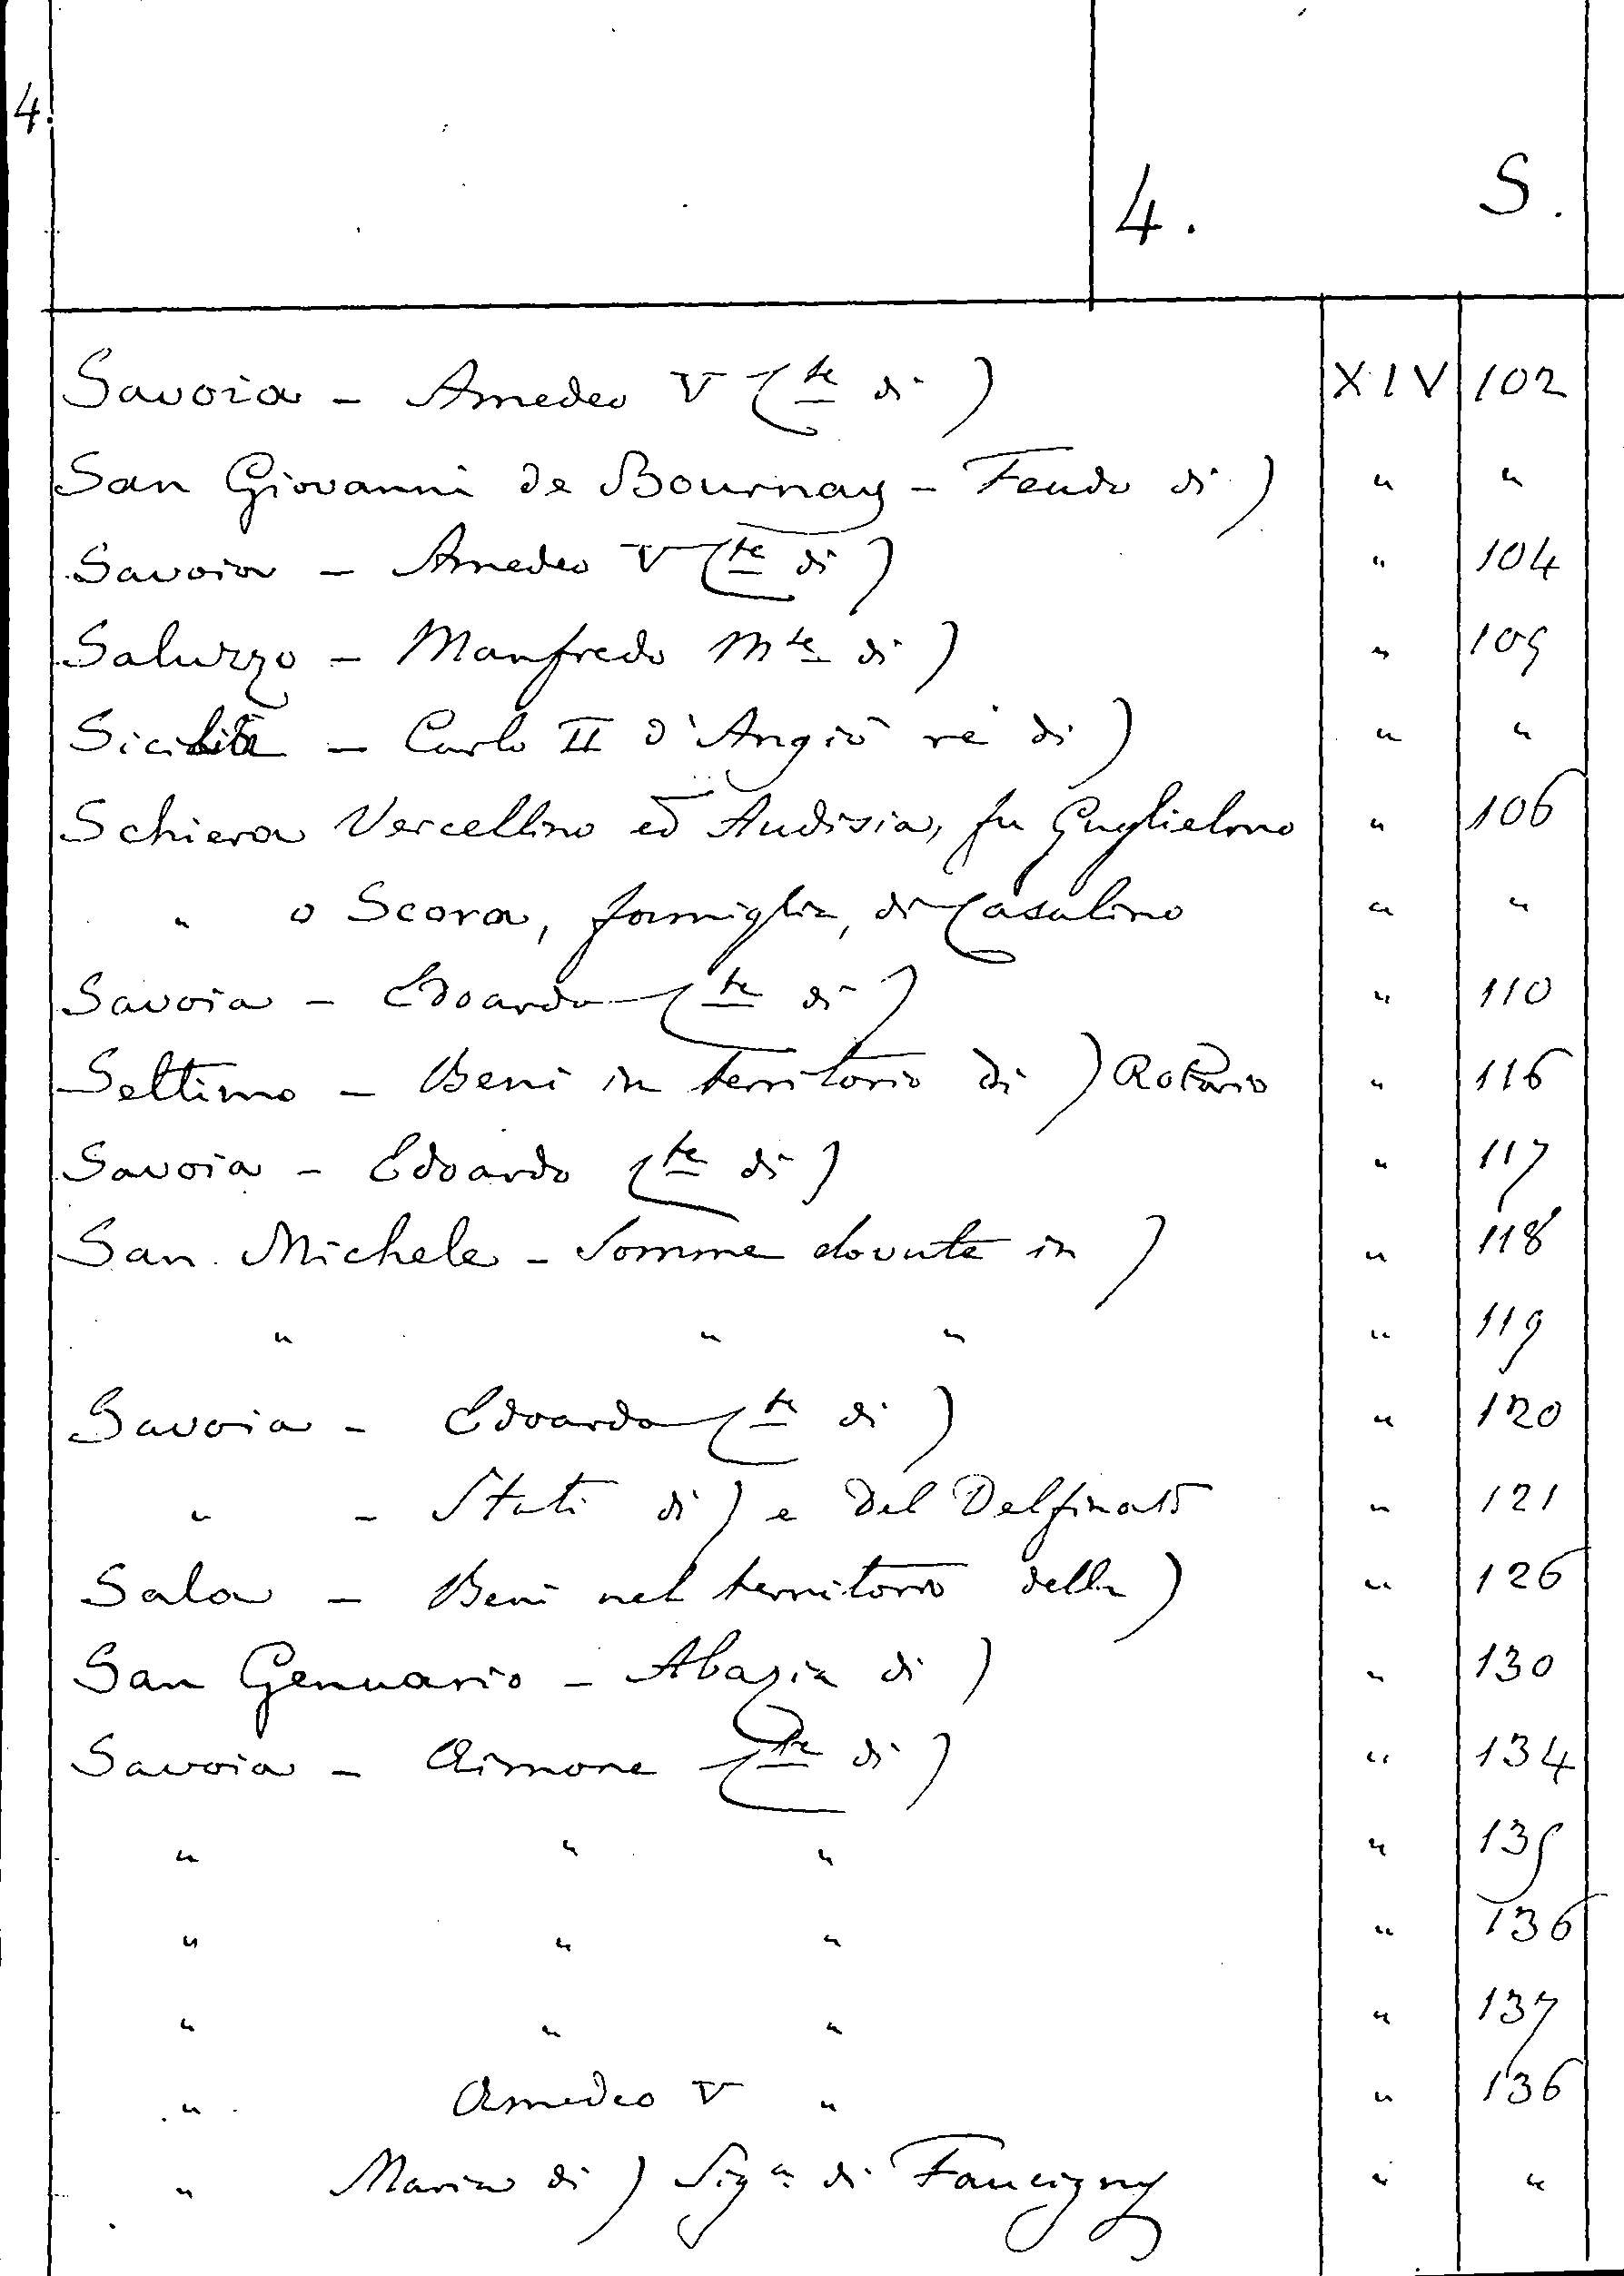 4.
4. S.
Savoia - Amedeo V Cte di ) XIV 102
San Giovanni de Bournay - Feudo di ) " "
Savoia - Amedeo V Cte di ) " 104
Saluzzo - Manfredo Mte di ) " 105
Sicilia - Carlo II d'Angiò re di ) " "
Schiera Vercellino ed Audisia, fu Guglielmo " 106
" o Scora, famiglia, di Casalino " "
Savoia - Edoardo Cte di ) " 110
Settimo - Beni in territorio di ) Rotario " 116
Savoia - Edoardo Cte di ) " 117
San Michele - Somme dovute in ) " 118
" " " " 119
Savoia - Edoardo Cte di ) " 120
" - Stati di ) e del Delfinato " 121
Sala - Beni nel territorio della ) " 126
San Genuario - Abazia di ) " 130
Savoia - Aimone Cte di ) " 134
" " " " 135
" " " " 136
" " " " 137
" Amedeo V " " 136
" Maria di ) Siga di Faucigny " "